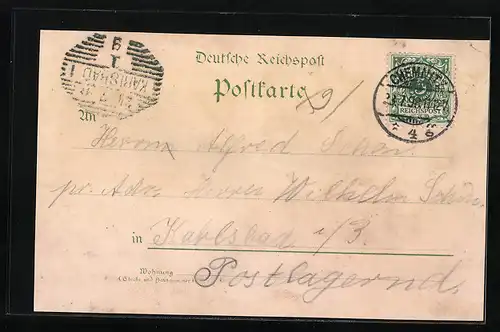 Deutsche Reichspost
Postkarte
CHEMNITZ
REICHSPOST
KARLSBAD 1
An
Herrn Alfred Schön
pr. Adr. Herrn Wilhelm Schön
in Karlsbad i/B.
Wohnung
Postlagernd.